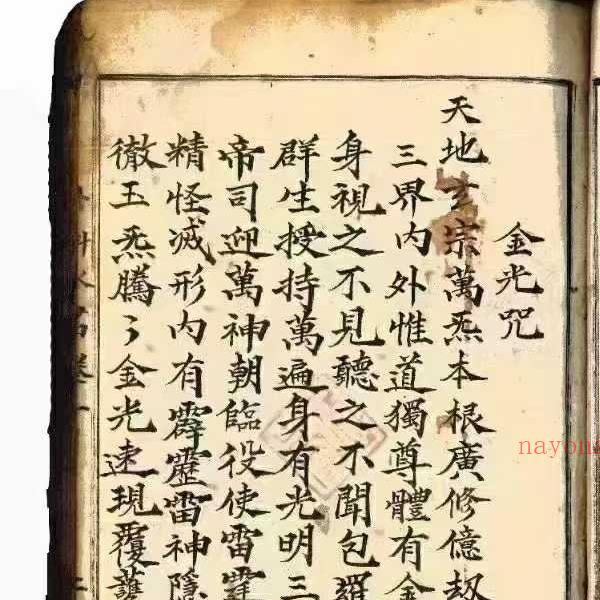 金光咒
天地玄宗萬炁本根廣修億劫
三界内外惟道獨尊體有金
身視之不見聽之不聞包羅
群生授持萬遍身有光明三
帝司迎萬神朝臨役使雷霆
精怪滅形内有霹靂雷神隱
徹玉炁騰〻金光速現覆護
nayona